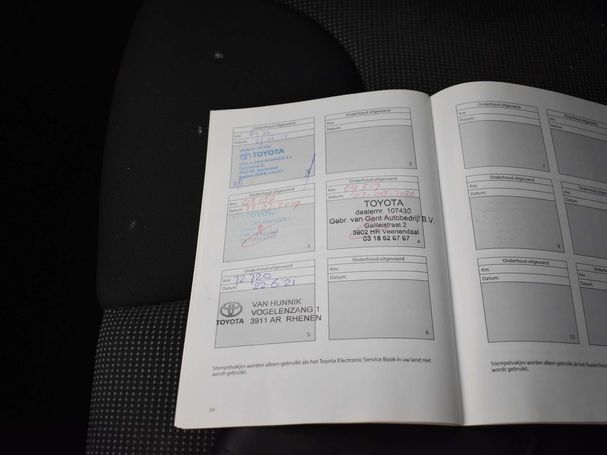 Onderhoud uitgevoerd
Km:
Datum:
TOYOTA
Onderhoud uitgevoerd
Km:
Datum:
2
Onderhoud uitgevoerd
Km:
Datum:
TOYOTA
3
Onderhoud uitgevoerd
Km:
Datum:
TOYOTA
dealernr. 107430
Gebr. van Gent Autobedrijf B.V.
Galileistraat 2
3902 HR Veenendaal
03 18 52 67 67
4
Onderhoud uitgevoerd
Km: 72 720
Datum: 22.6.21
TOYOTA
VAN HUNNIK
VOGELENZANG 1
3911 AR RHENEN
5
Onderhoud uitgevoerd
Km:
Datum:
6
Stempelvakjes worden alleen gebruikt als het Toyota Electronic Service Book in uw land niet
wordt gebruikt.
24
Onderhoud uitgevoerd
Km:
Datum:
7
Onderhoud uitgevoerd
Km:
Datum:
Onderhoud uitgevoerd
Km:
Datum:
11
Stempelvakjes worden alleen gebruikt als het Toyota
wordt gebruikt.